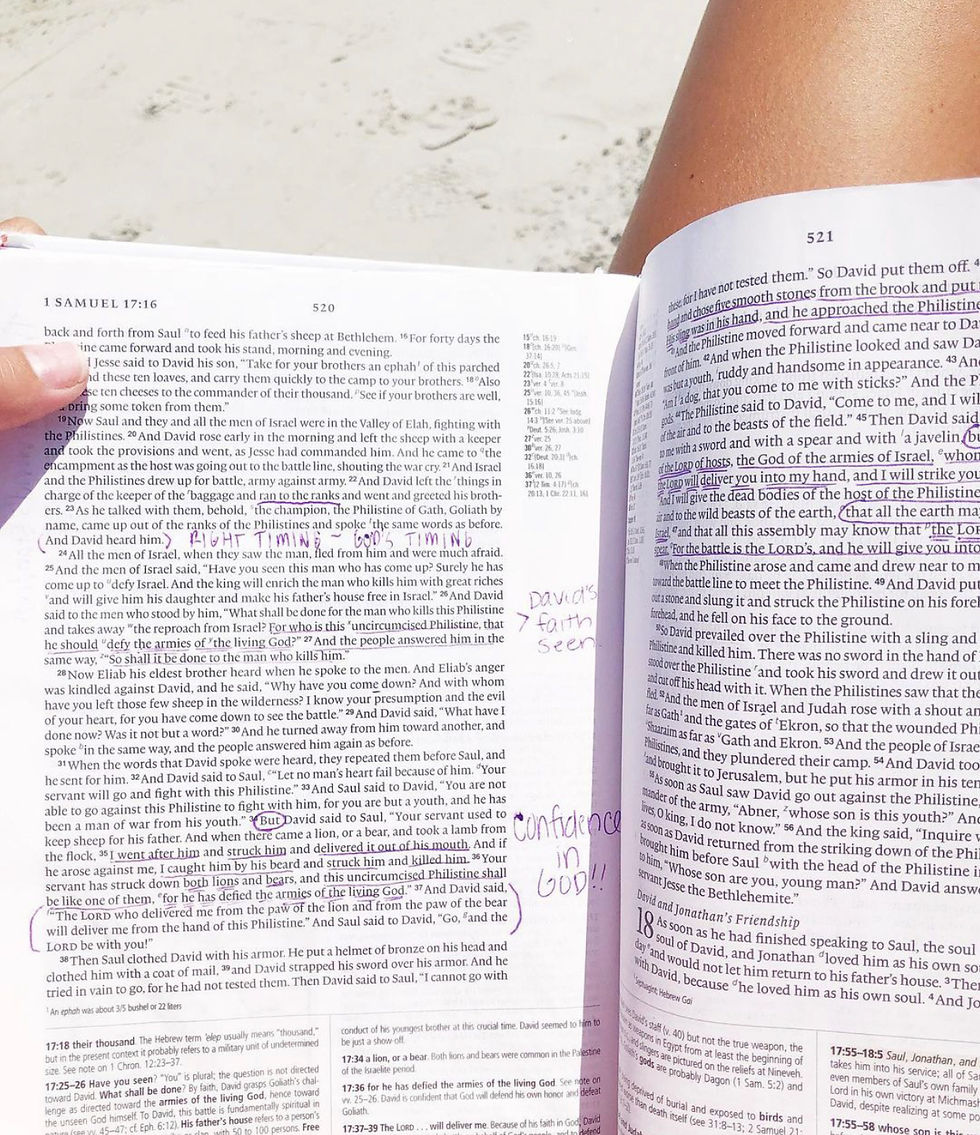 1 SAMUEL 17:16
520
back and forth from Saul to feed his father's sheep at Bethlehem. 16For forty days the
came forward and took his stand, morning and evening.
Jesse said to David his son, "Take for your brothers an ephah of this parched
these ten loaves, and carry them quickly to the camp to your brothers. 18Also
ten cheeses to the commander of their thousand. See if your brothers are well,
bring some token from them."
19Now Saul and they and all the men of Israel were in the Valley of Elah, fighting with
the Philistines. 20And David rose early in the morning and left the sheep with a keeper
and took the provisions and went, as Jesse had commanded him. And he came to the
encampment as the host was going out to the battle line, shouting the war cry. 21And Israel
and the Philistines drew up for battle, army against army. 22And David left the things in
charge of the keeper of the baggage and ran to the ranks and went and greeted his broth-
ers. 23As he talked with them, behold, the champion, the Philistine of Gath, Goliath by
name, came up out of the ranks of the Philistines and spoke the same words as before.
And David heard him. RIGHT TIMING ~ GOD'S TIMING
24All the men of Israel, when they saw the man, fled from him and were much afraid.
25And the men of Israel said, "Have you seen this man who has come up? Surely he has
come up to defy Israel. And the king will enrich the man who kills him with great riches
and will give him his daughter and make his father's house free in Israel." 26And David
said to the men who stood by him, "What shall be done for the man who kills this Philistine
and takes away the reproach from Israel? For who is this uncircumcised Philistine, that
he should defy the armies of the living God?" 27And the people answered him in the
same way, "So shall it be done to the man who kills him."
28Now Eliab his eldest brother heard when he spoke to the men. And Eliab's anger
was kindled against David, and he said, "Why have you come down? And with whom
have you left those few sheep in the wilderness? I know your presumption and the evil
of your heart, for you have come down to see the battle." 29And David said, "What have I
done now? Was it not but a word?" 30And he turned away from him toward another, and
spoke in the same way, and the people answered him again as before.
31When the words that David spoke were heard, they repeated them before Saul, and
he sent for him. 32And David said to Saul, "Let no man's heart fail because of him. Your
servant will go and fight with this Philistine." 33And Saul said to David, "You are not
able to go against this Philistine to fight with him, for you are but a youth, and he has
been a man of war from his youth." 34But David said to Saul, "Your servant used to
keep sheep for his father. And when there came a lion, or a bear, and took a lamb from
the flock, 35I went after him and struck him and delivered it out of his mouth. And if
he arose against me, I caught him by his beard and struck him and killed him. 36Your
servant has struck down both lions and bears, and this uncircumcised Philistine shall
be like one of them, for he has defied the armies of the living God." 37And David said,
"The LORD who delivered me from the paw of the lion and from the paw of the bear
will deliver me from the hand of this Philistine." And Saul said to David, "Go, and the
LORD be with you!"
38Then Saul clothed David with his armor. He put a helmet of bronze on his head and
clothed him with a coat of mail, 39and David strapped his sword over his armor. And he
tried in vain to go, for he had not tested them. Then David said to Saul, "I cannot go with
David's
faith
seen
Confidence
in
GOD!!
1 An ephah was about 3/5 bushel or 22 liters
17:18 their thousand. The Hebrew term 'elep usually means "thousand,"
but in the present context it probably refers to a military unit of undetermined
size. See note on 1 Chron. 12:23–37.
17:25–26 Have you seen? "You" is plural; the question is not directed
toward David. What shall be done? By faith, David grasps Goliath's chal-
lenge as directed toward the armies of the living God, hence toward
the unseen God himself. To David, this battle is fundamentally spiritual in
nature (see vv. 45–47; cf. Eph. 6:12). His father's house refers to a person's
with 50 to 100 persons. Free
conduct of his youngest brother at this crucial time. David seemed to him to
be just a show off.
17:34 a lion, or a bear. Both lions and bears were common in the Palestine
of the Israelite period.
17:36 for he has defied the armies of the living God. See note on
vv. 25–26. David is confident that God will defend his own honor and defeat
Goliath.
17:37–39 The LORD . . . will deliver me. Because of his faith in God, David
521
these, for I have not tested them." So David put them off.
hand and chose five smooth stones from the brook and put
His sling was in his hand, and he approached the Philistine
And the Philistine moved forward and came near to Da
front of him. 42And when the Philistine looked and saw Da
was but a youth, ruddy and handsome in appearance. 43An
"Am I a dog, that you come to me with sticks?" And the P
gods. 44The Philistine said to David, "Come to me, and I wil
of the air and to the beasts of the field." 45Then David said
to me with a sword and with a spear and with a javelin,
of the LORD of hosts, the God of the armies of Israel, whom
the LORD will deliver you into my hand, and I will strike you
And I will give the dead bodies of the host of the Philistine
air and to the wild beasts of the earth, that all the earth ma
Israel, 47and that all this assembly may know that the LOR
spear. For the battle is the LORD's, and he will give you into
48When the Philistine arose and came and drew near to m
toward the battle line to meet the Philistine. 49And David put
out a stone and slung it and struck the Philistine on his foreh
forehead, and he fell on his face to the ground.
50So David prevailed over the Philistine with a sling and
Philistine and killed him. There was no sword in the hand of
stood over the Philistine and took his sword and drew it out
and cut off his head with it. When the Philistines saw that the
fled. 52And the men of Israel and Judah rose with a shout an
far as Gath and the gates of Ekron, so that the wounded Phi
Shaaraim as far as Gath and Ekron. 53And the people of Israe
Philistines, and they plundered their camp. 54And David too
and brought it to Jerusalem, but he put his armor in his ten
55As soon as Saul saw David go out against the Philistine,
mander of the army, "Abner, whose son is this youth?" And
lives, O king, I do not know." 56And the king said, "Inquire w
as soon as David returned from the striking down of the Phi
brought him before Saul with the head of the Philistine i
to him, "Whose son are you, young man?" And David answe
servant Jesse the Bethlehemite."
David and Jonathan's Friendship
18 As soon as he had finished speaking to Saul, the soul
soul of David, and Jonathan loved him as his own so
day and would not let him return to his father's house. 3The
with David, because he loved him as his own soul. 4And Jo
Septuagint; Hebrew Gai
David's staff (v. 40) but not the true weapon, the
weapons in Egypt from at least the beginning of
slingers are pictured on the reliefs at Nineveh.
gods are probably Dagon (1 Sam. 5:2) and
deprived of burial and exposed to birds and
than death itself (see 31:8–13; 2 Samuel 21:
17:55–18:5 Saul, Jonathan, and
takes him into his service; all of Sa
even members of Saul's own family
Lord in his own victory at Michmash
David, despite realizing at some po
17:55–58 whose son is this